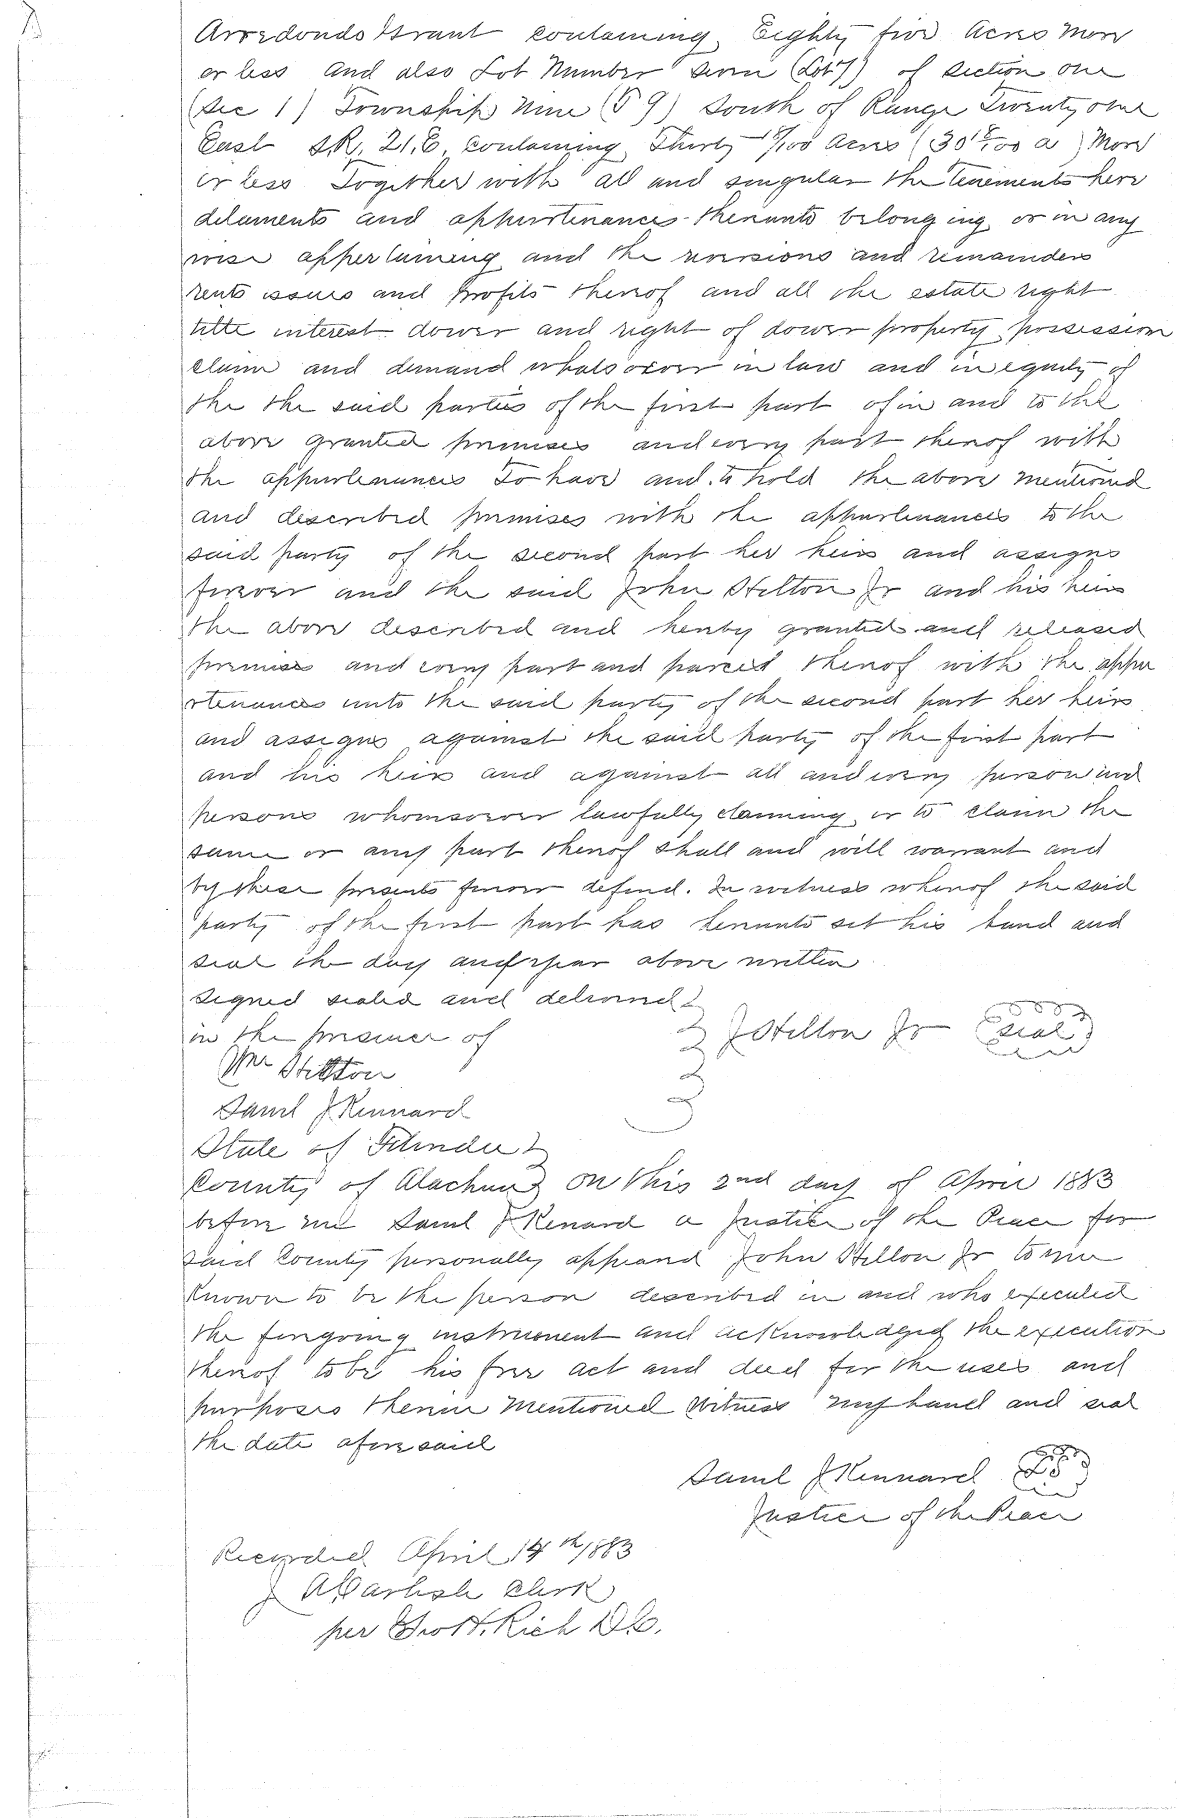 Arredondo Grant containing Eighty five Acres More
or less and also Lot Number Seven (Lot 7) of Section one
(Sec 1) Township Nine (S 9) South of Range Twenty one
East S.R. 21. E. containing Thirty 18/100 Acres (30 18/100 a) More
or less Together with all and singular the tenements here
dilaments and appurtenances thereunto belonging or in any
wise appertaining and the reversions and remainders
rents issues and profits thereof and all the estate right
title interest dower and right of dower property possession
claim and demand whatsoever in law and in equity of
the the said parties of the first part of in and to the
above granted premises and every part thereof with
the appurtenances To have and to hold the above mentioned
and described premises with the appurtenances to the
said party of the second part her heirs and assigns
forever and the said John Hilton Jr and his heirs
the above described and hereby granted and released
premises and every part and parcel thereof with the appu
rtenances unto the said party of the second part her heirs
and assigns against the said party of the first part
and his heirs and against all and every person and
persons whomsoever lawfully claiming or to claim the
same or any part thereof shall and will warrant and
by these presents forever defend. In witness whereof the said
party of the first part has hereunto set his hand and
seal the day and year above written
Signed sealed and delivered
in the presence of J Hilton Jr (seal)
Wm Hilton
Saml J Kennard
State of Florida
County of Alachua On this 2nd day of April 1883
before me Saml J Kenard a Justice of the Peace for
said County personally appeard John Hilton Jr to me
Known to be the person described in and who executed
the foregoing instrument and acknowledged the execution
thereof to be his free act and deed for the uses and
purposes therein mentioned Witness my hand and seal
the date aforesaid
Saml J Kennard LS
Justice of the Peace
Recorded April 14th 1883
J A Carlisle Clerk
per Geo H. Rich D.C.